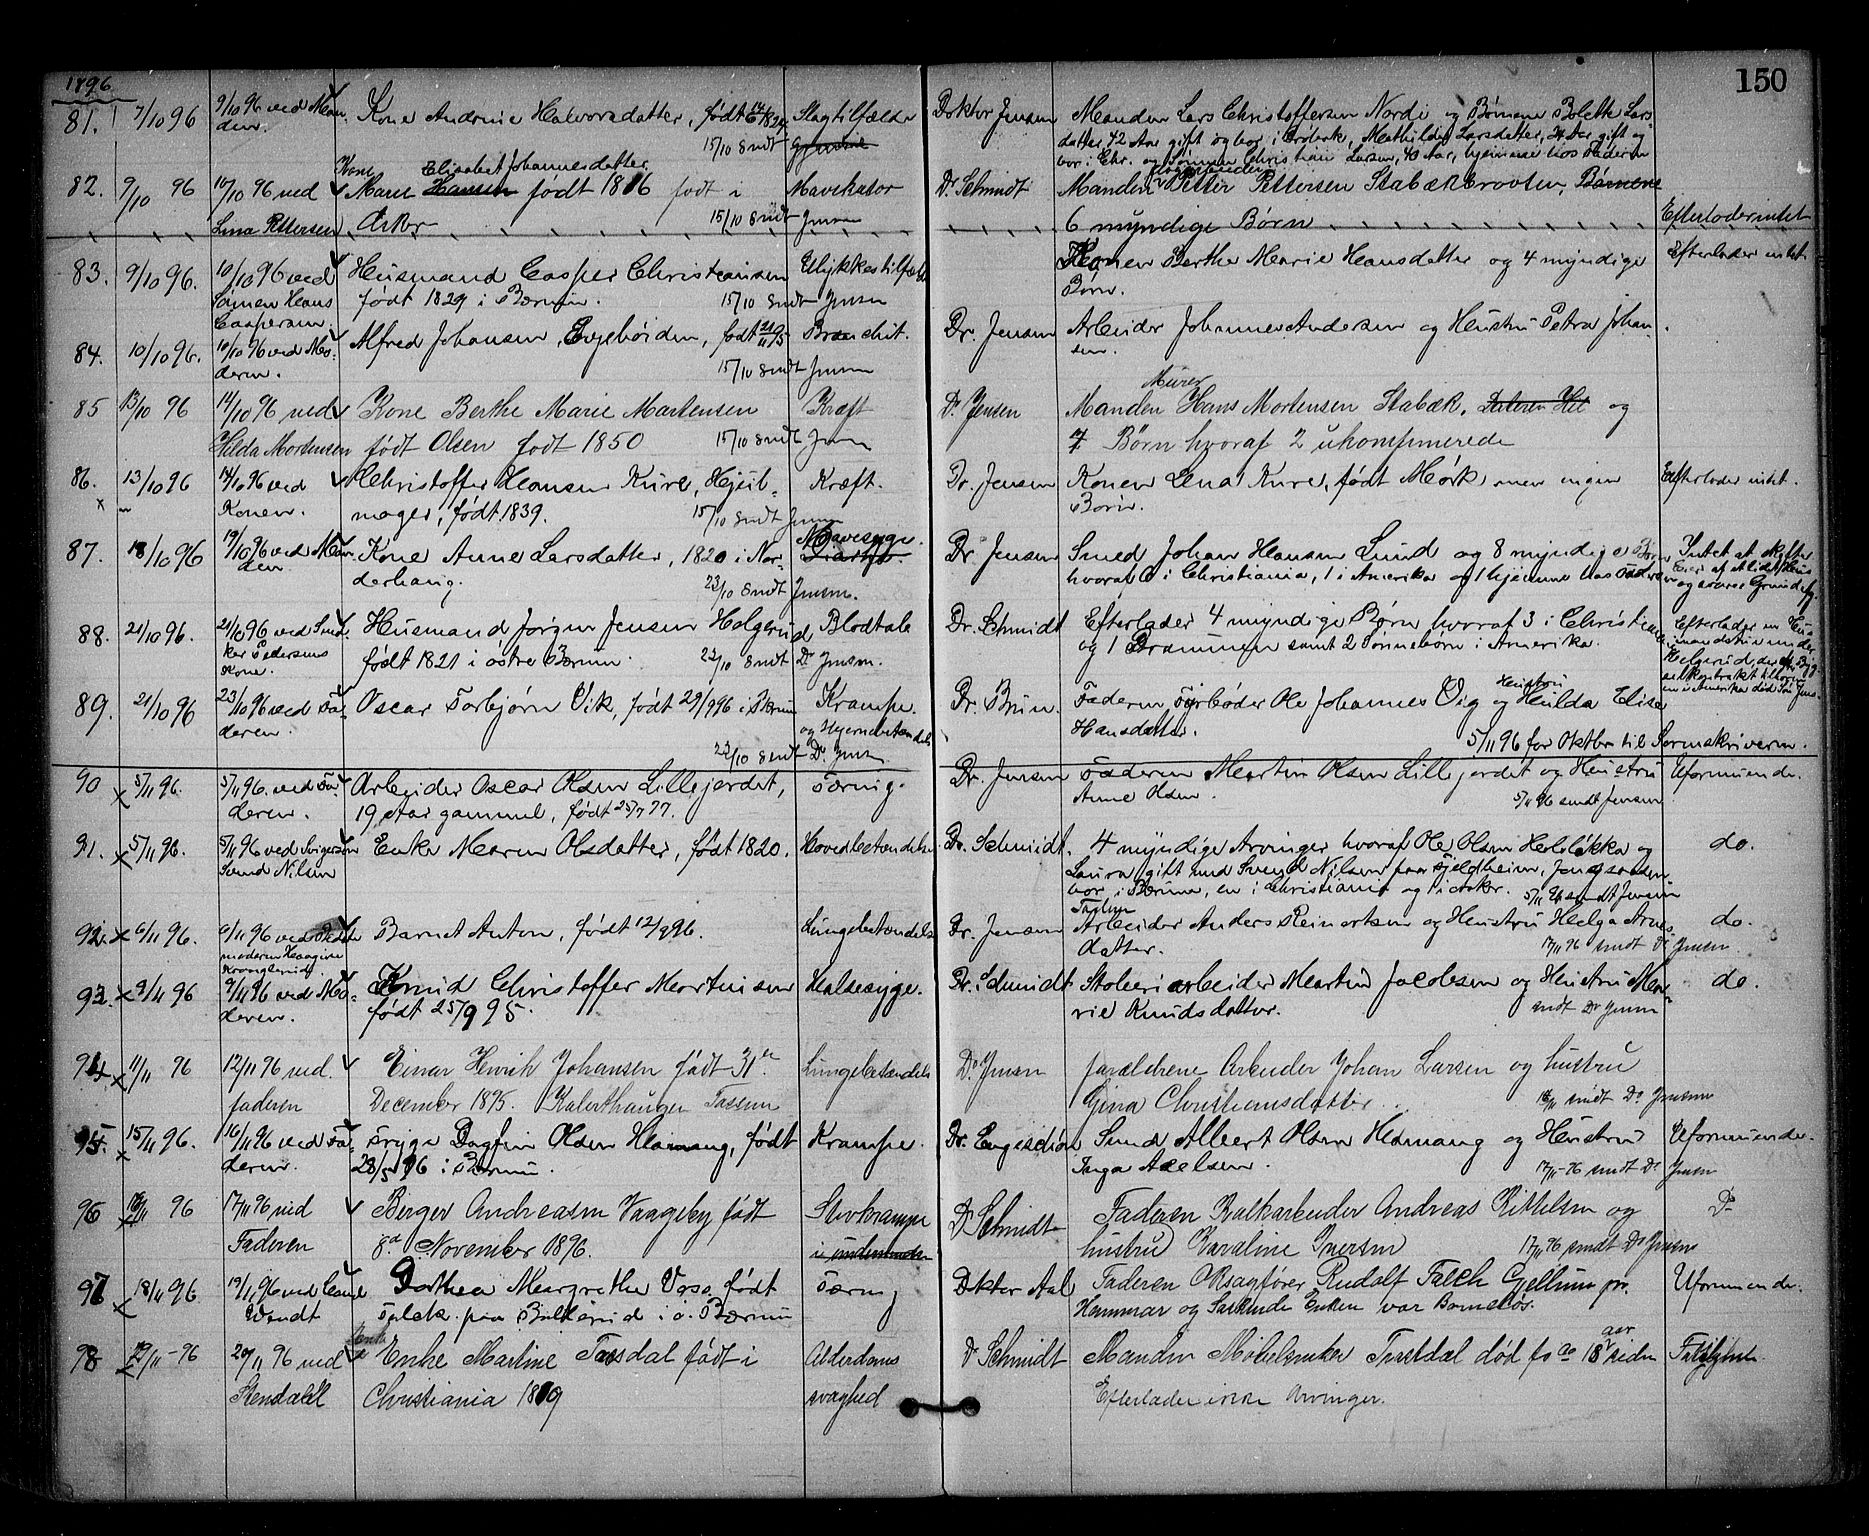 1896
150
81. 7/10 96 9/10 96 ved Man- Kone Andrine Halvorsdatter, født 1829 Slagtilfælde Doktor Jensen Manden Lars Christoffersen Nordi og Børnene Bolette Lars
den. 15/10 sendt datter, 42 Aar gift og bor i Mathilde Larsdatter, gift og
bor i Chr. og Sønnen Christian Larsen, 40 Aar, hjemme hos Faderen
Kone Elisabet Johannesdatter
82. 9/10 96 10/10 96 ved Marie Hansen født 1816 født i Mavekatar Dr. Schmidt Manden Petter Pettersen Stabækbrooten, Børnene
Lina Pettersen Asker 15/10 sendt Jensen 6 myndige Børn Efterlader intet
83. 9/10 96. 10/10 96 ved Husmand Casper Christiansen Ulykkestilfælde Konen Berthe Marie Hansdatter og 4 myndige Efterlader intet
Sønnen Hans født 1829 i Bærum. 15/10 sendt Jensen Børn.
Caspersen.
84. 10/10 96. 10/10 96 ved Mo- Alfred Johansen, Evjehøiden, født 95 Bronchit. Dr. Jensen Arbeider Johannes Andersen og Hustru Petra Johan-
deren. 15/10 sendt Jensen sen.
Murer
85 13/10 96 14/10 96 ved Kone Berthe Marie Martensen Kræft Dr. Jensen Manden Hans Mortensen Stabæk, og
Hilda Mortensen født Olsen født 1850 15/10 sendt Jensen 7 Børn hvoraf 2 ukonfirmerede
86. 13/10 96 14/10 96 ved Christoffer Hansen Kure, Hjul- Kræft. Dr. Jensen Konen Lena Kure, født Mørk men ingen Efterlader intet.
x Konen. mager, født 1839. 15/10 sendt Jensen Børn.
Mavesyge.
87. 18/10 96 19/10 96 ved Man- Kone Anne Larsdatter, 1820 i Nor- Dr. Jensen Smed Johan Hansen Lund og 8 myndige Børn Intet at skifte
den derhaug. 23/10 sendt Jensen. hvoraf 6 i Christiania, 1 i Amerika og 1 hjemme hos Faderen Eier af et lidet Hus
og svarer Grundafg.
88. 21/10 96. 21/10 96 ved Sned- Husmand Jørgen Jensen Holgerud Blodtab Dr. Schmidt Efterlader 4 myndige Børn hvoraf 3 i Christiania Efterlader en Hus-
ker Pedersens født 1821 i østre Bærum. 23/10 sendt Dr Jensen. og 1 Drammen samt 2 Sønnebørn i Amerika. mandstue under
Kone. Helgerud, der efter Byg-
selkontrakt tilhører
en i Amerika død Søn Jens.
89. 21/10 96 23/10 96 ved Fa- Oscar Torbjørn Vik, født 29/9 96 i Bærum Krampe. Dr. Brun. Faderen, Fyrbøder Ole Johannes Vig og Hustru Hulda Elise
deren. og Hjernebetændelse Hansdatter.
23/10 sendt Dr Jensen 5/11 96 for Oktbr til Sorenskriveren.
90 x 5/11 96. 5/11 96. ved Fa- Arbeider Oscar Olsen Lillejordet, Tæring. Dr. Jensen Faderen Martin Olsen Lillejordet og Hustru Uformuende.
deren. 19 Aar gammel, født 25/7 77. Anne Olsen. 5/11 96 sendt Jensen
91. x 5/11 96. 5/11 96 ved Svigersøn Enke Maren Olsdatter, født 1820. Hovedbetændelse Dr. Schmidt. 4 myndige Arvinger hvoraf Ole Olsen Helløkka og do.
Svend Nilsen Laura gift med Svend Nilsen paa Fjeldheim, Jongsaasen
bor i Bærum, en i Christiania og 1 i Asker. 5/11 96 sendt Jensen
Faderen
92. x 6/11 96. 6/11 96 ved Beste- Barnet Anton, født 12/9 96. Lungebetændelse Dr. Jensen Arbeider Anders Reinertsen og Hustru Helga Arnes- do.
moderen datter. 17/11 96 sendt Dr Jensen
93. x 9/11 96 9/11 96 ved Mo- Knud Christoffer Martinsen Halssyge. Dr. Schmidt Støberiarbeider Martin Jacobsen og Hustru Ma- do.
deren. født 25/9 95. rie Knudsdatter. sendt Dr Jensen
94 x 11/11 96 12/11 96 ved Einar Henrik Johansen født 31te Lungebetændelse Dr Jensen forældrene Arbeider Johan Larsen og hustru
faderen December 1895. Tassen Gina Christiansdatter. 18/11 sendt Dr Jensen
95. x 15/11 96. 16/11 96 ved Fa- Trygve Dagfin Olsen Hamang, født Krampe. Dr. Engeschiøn Smed Albert Olsen Hamang og Hustru Uformuende.
deren. 28/5 96 i Bærum. Inga Axelsen. 17/11-96 sendt Dr Jensen
96 16/11 96 17/11 96 ved Birger Andreasen Vaageby født Stivkrampe Dr Schmidt Faderen Kalkarbeider Andreas Kittelsen og Do
Faderen 8de November 1896. hustru Karoline Iversen 17/11 96 sendt Dr Jensen
97 x 18/11 96 19/11 96 ved Dorthea Margrethe Voss født Tæring Doktor Aal Faderen O.Rsagfører Rudolf Falch Gjellum pr. Uformuende.
Wendt Falck. paa i ø. Bærum Hammar og Enken var Barnløs.
98 19/11-96 20/11 96 ved Enke Martine født i Alderdoms Dr Schmidt Manden Møbelsnedker død for ca 18 aar siden
Stendahl Christiania 1819 svaghed Efterlader ikke Arvinger.